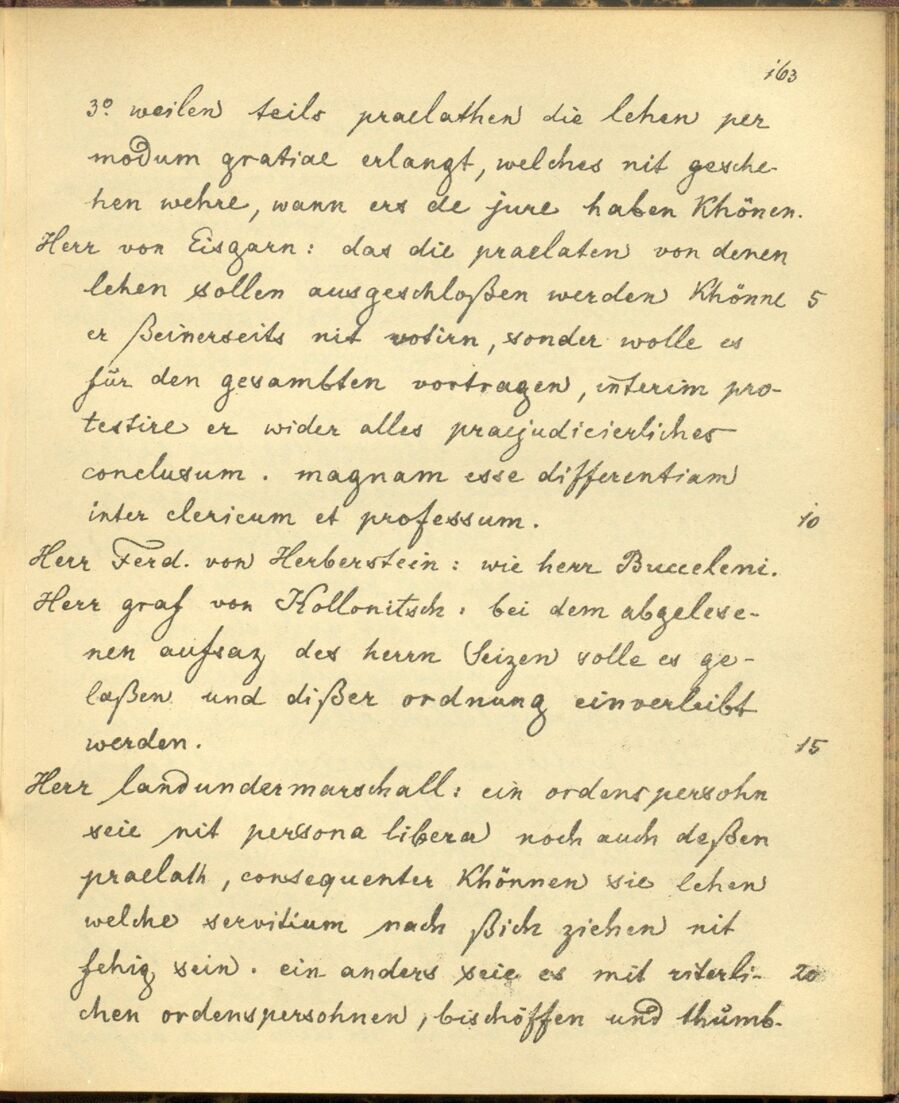 163
3º weilen teils praelathen die lehen per
modum gratiae erlangt, welches nit gesche-
hen wehre, wann ers de jure haben khönen.
Herr von Eisgarn: das die praelaten von denen
lehen sollen ausgeschloßen werden khönne 5
er ßeinerseits nit votirn, sonder wolle es
für den gesambten vortragen, interim pro-
testire er wider alles praejudicierliches
conclusum. magnam esse differentiam
inter clericum et professum. 10
Herr Ferd. von Herberstein: wie herr Bucceleni.
Herr graf von Kollonitsch: bei dem abgelese-
nen aufsaz des herrn Seizen solle es ge-
laßen und dißer ordnung einverleibt
werden. 15
Herr landundermarschall: ein ordenspersohn
seie nit persona libera noch auch deßen
praelath, consequenter khönnen sie lehen
welche servitium nach ßich ziehen nit
fehig sein. ein anders seie es mit riterli- 20
chen ordenspersohnen, bischöffen und thumb-